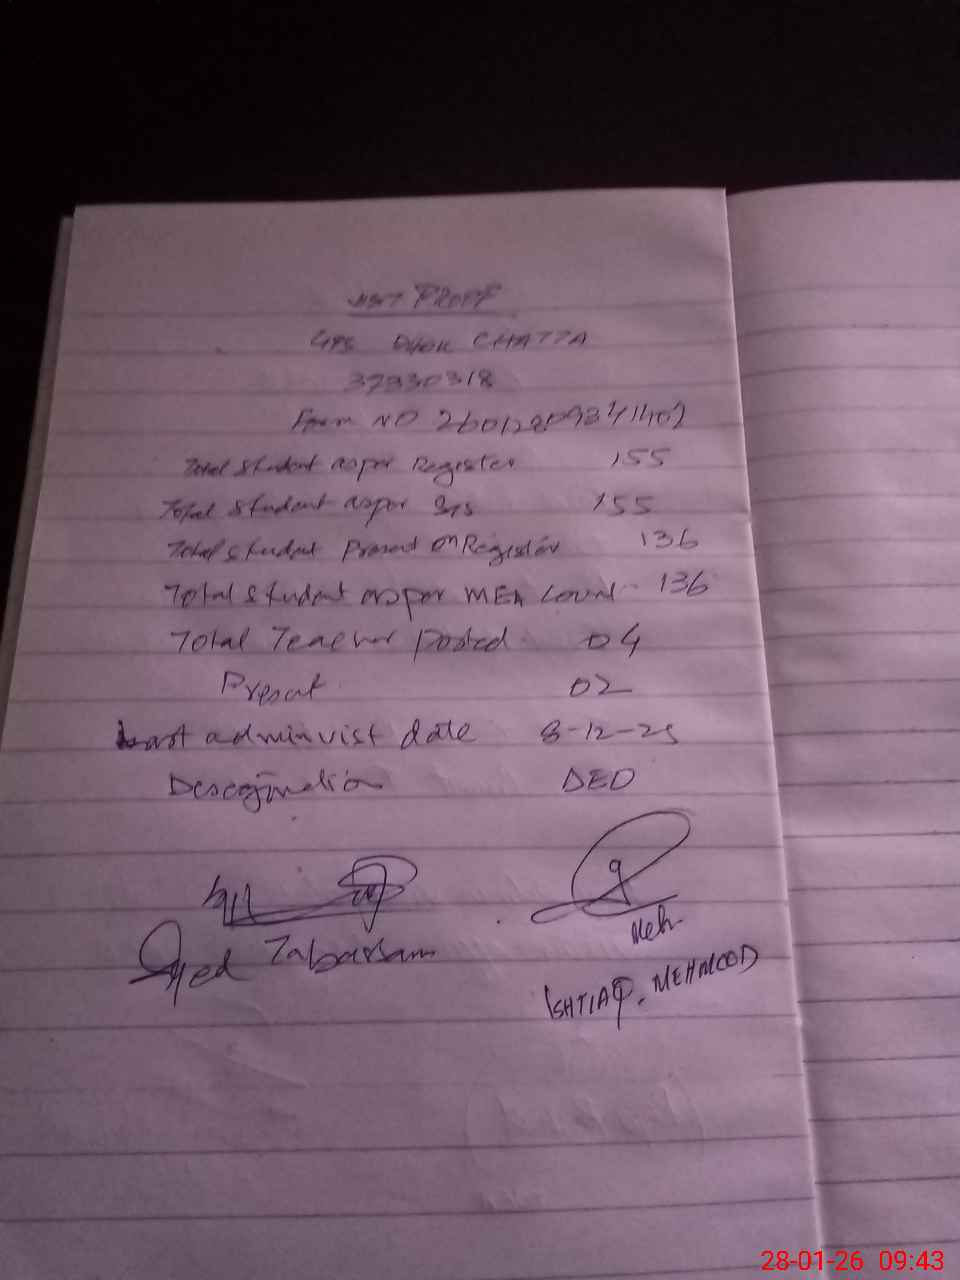 VISIT PROFF
GPS DHOK CHATTA
37330318
Form NO
Total Student as per Register 155
Total Student as per SIS 155
Total Student Present on Register 136
Total Student as per MEA Count 136
Total Teacher Posted 04
Present 02
Last admin vist date 8-12-25
DED
Syed Tabassam
Meh
ISHTIAQ. MEHMOOD
28-01-26 09:43